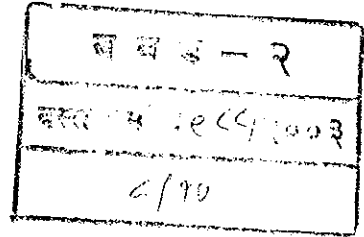 ब ब ई - २
दस्त क्र . १९८५/२००३
८/१०